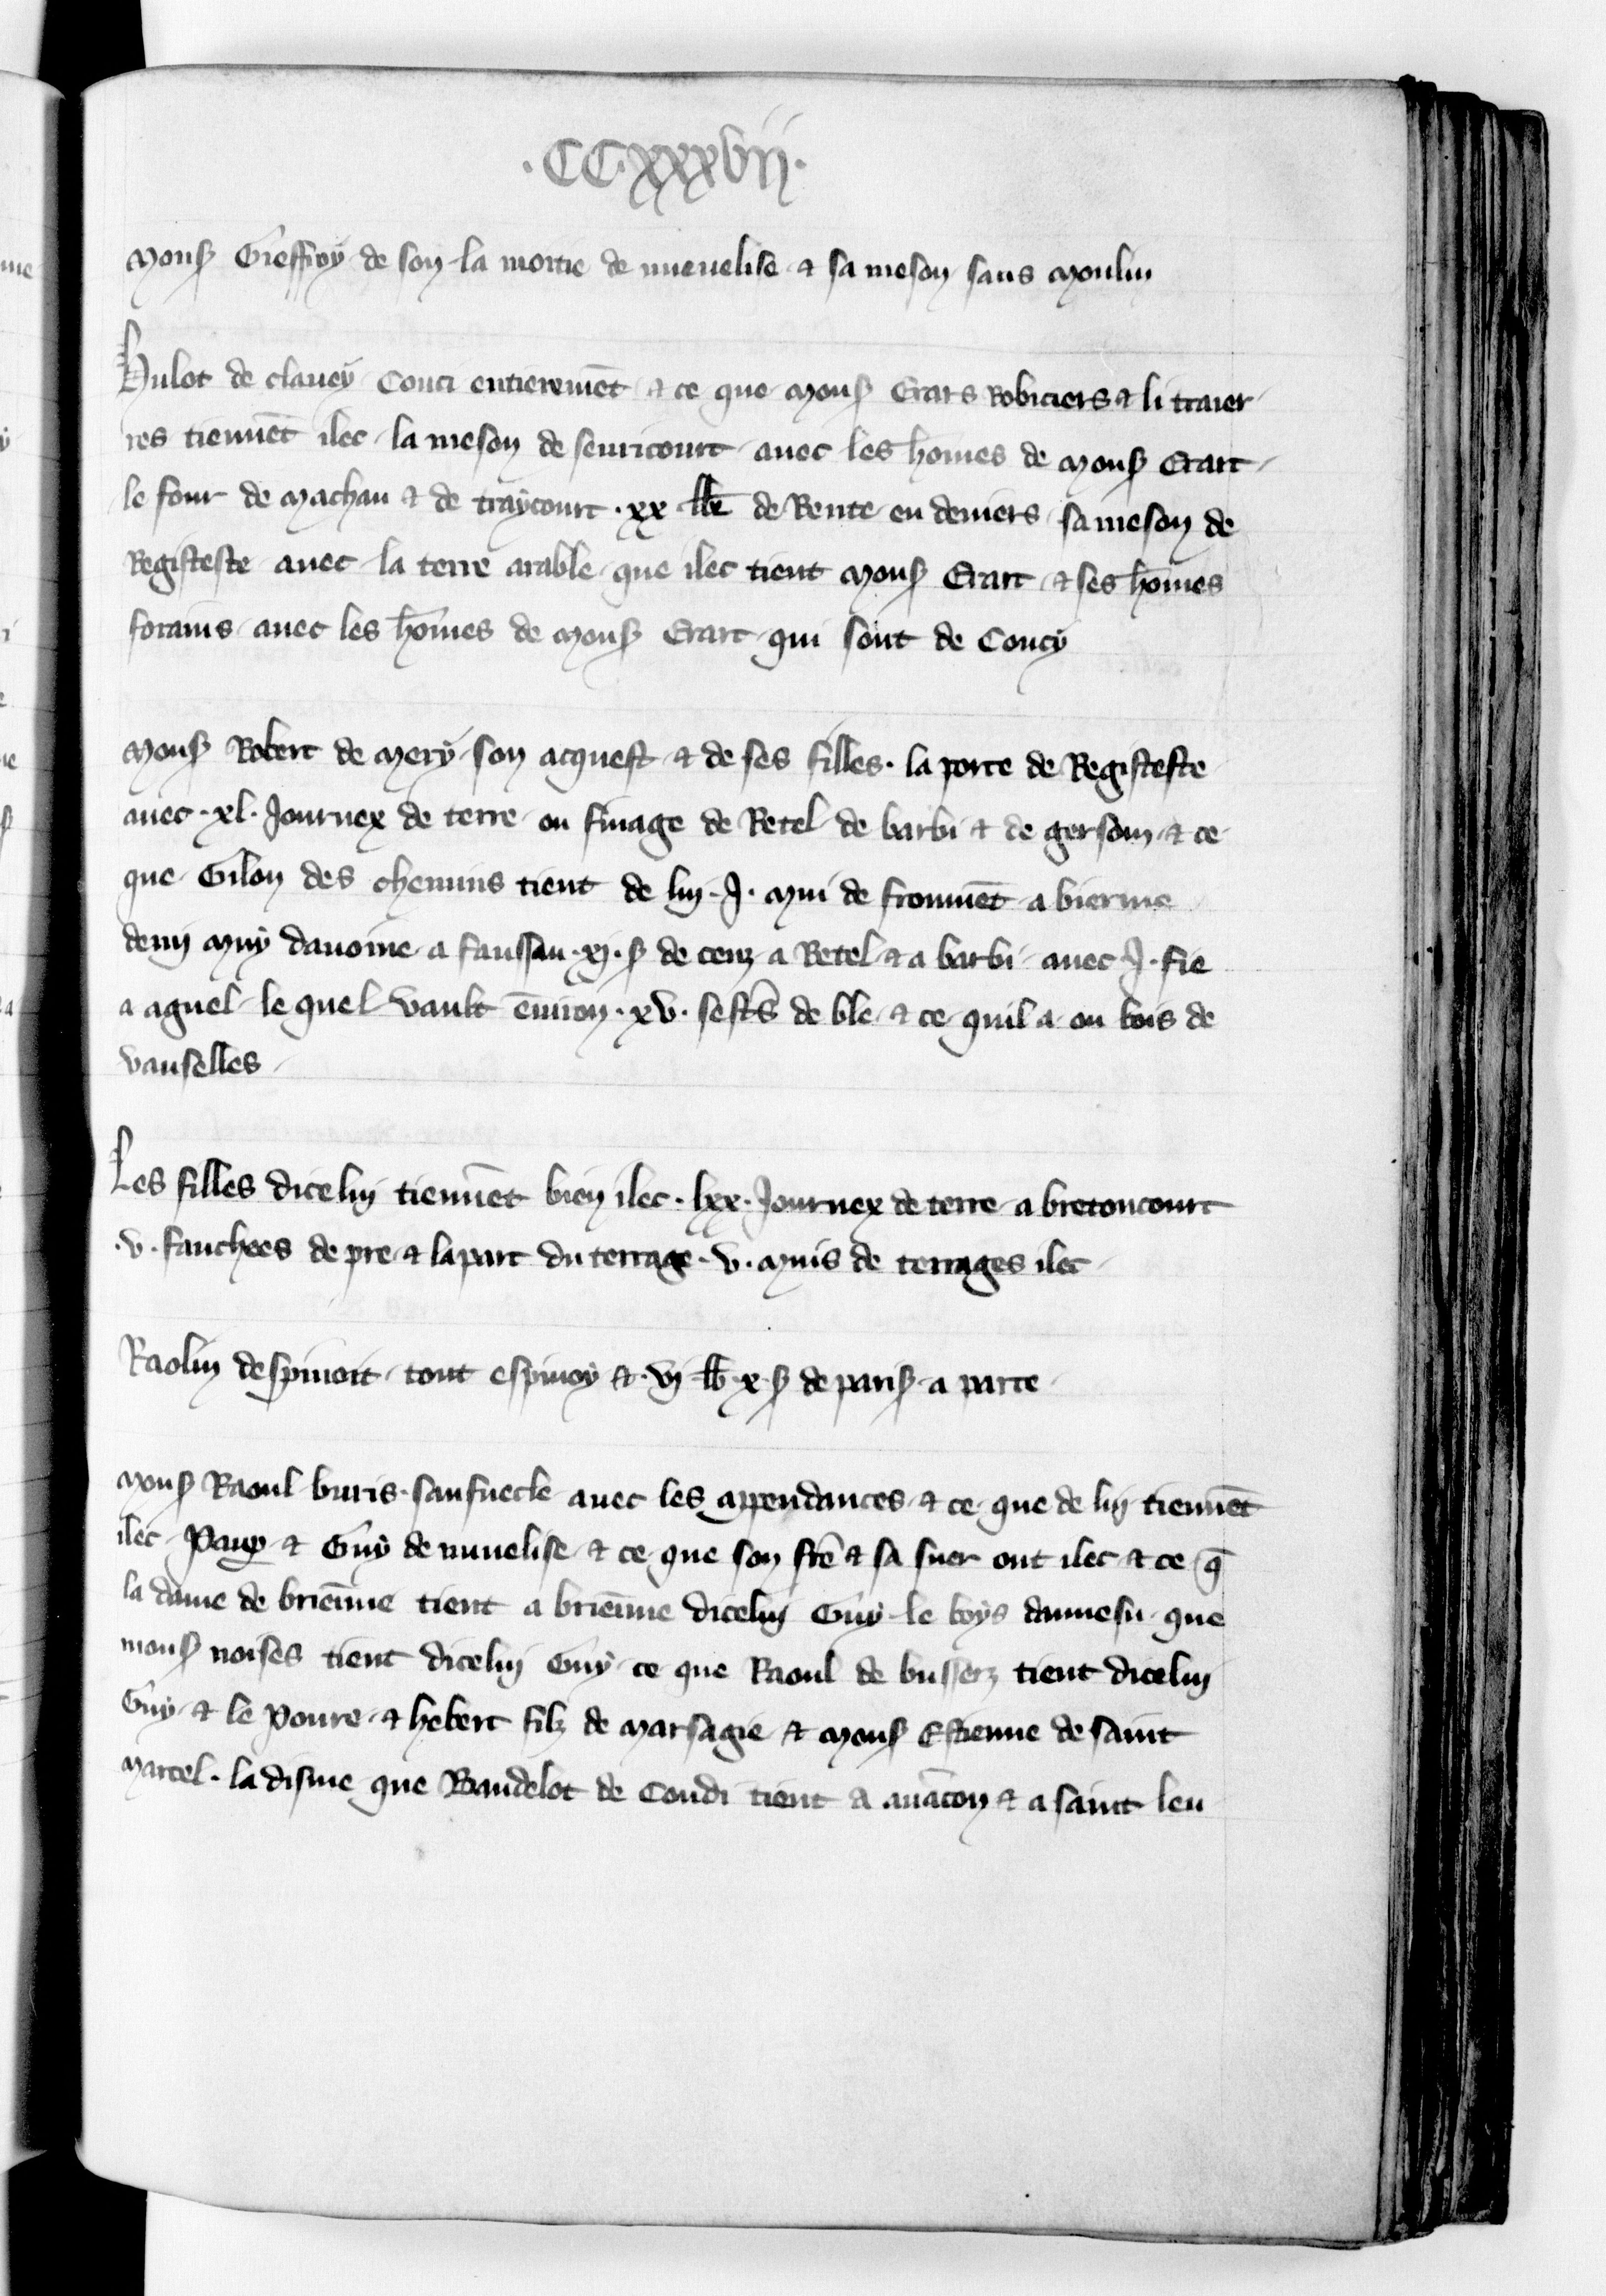 .CC.xxxvij.
Mons̄ Gieffroy de son la moitie de nuevelise & sa meson sans moulin
Hulot de clauey Couci entieremēt & ce que mons̄ Erars Robiciers & li traier
res tiennēt ilec la meson de seuricourt avec les hōmes de mons̄ Erart
le four de machau & de traycourt . xx . lb̄ de Rente en deniers sa meson de
Registeste avec la terre arable que ilec tient mons̄ Erart & ses hōmes
forains avec les hōmes de mons̄ Erart qui sont de Coucy
Mons̄ Robert de mery son acquest & de ses filles . la porte de Registeste
avec . xl . Journex de terre ou finage de Retel de barbi & de gersom & ce
que Gilon des chemins tient de luy . J . mui de fromēt a bierme
demy muy davoine a faussau . xj . s̄ de cenz a Retel & a barbi avec . J . fie
a aguel le quel vault ēviron . xv . sest's de ble & ce quil a ou bois de
vauselles
Les filles dicelui tiennēt bien ilec . lxx . Journex de terre a bretoncourt
. v . fauchees de pre & la part du terrage . v . muis de terrages ilec
Raolin despinoit tout espinoy & . vj . lb̄ . x . s̄ de paris̄ a parte
Mons̄ Raoul buris . saufuecle avec les appendances & ce que de luy tiennēt
ilec & Guy de nuvelise & ce que son frē & sa suer ont ilec & ce q̄
la dame de briēnne tient a briēnne dicelui Guy le boys daumesu que
mons̄ noises tient dicelui Guy ce que Raoul de busserz tient dicelui
Guy & le Poure & hebert filz de marsagie & mons̄ Estienne de saint
marcel . la disme que Baudelot de Condi tient a auācon & a saint leu